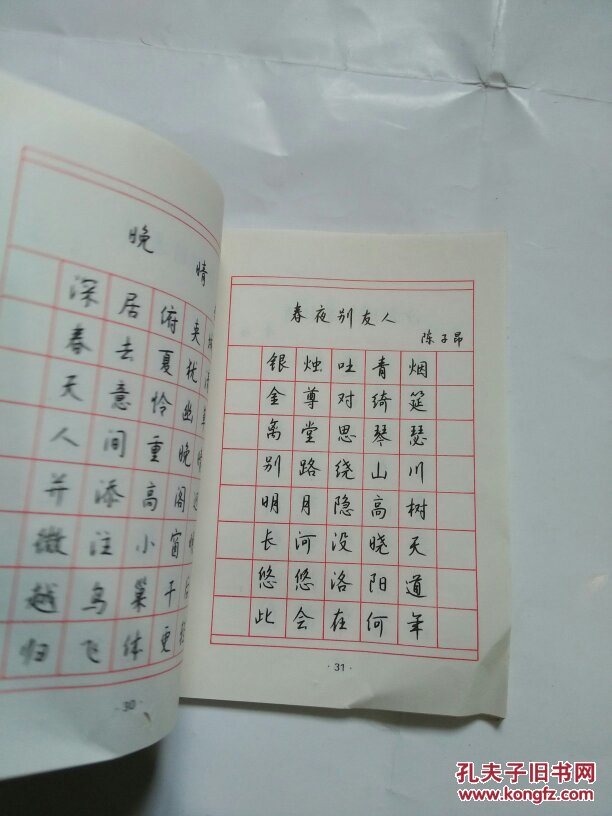 晚晴
深居俯夹
春去夏犹清
天意怜幽草
人间重晚晴
并添高阁迥
微注小窗明
越鸟巢干后
归飞体更轻
·30·
春夜别友人
陈子昂
银烛吐青烟
金尊对绮筵
离堂思琴瑟
别路绕山川
明月隐高树
长河没晓天
悠悠洛阳道
此会在何年
·31·
孔夫子旧书网
www.kongfz.com